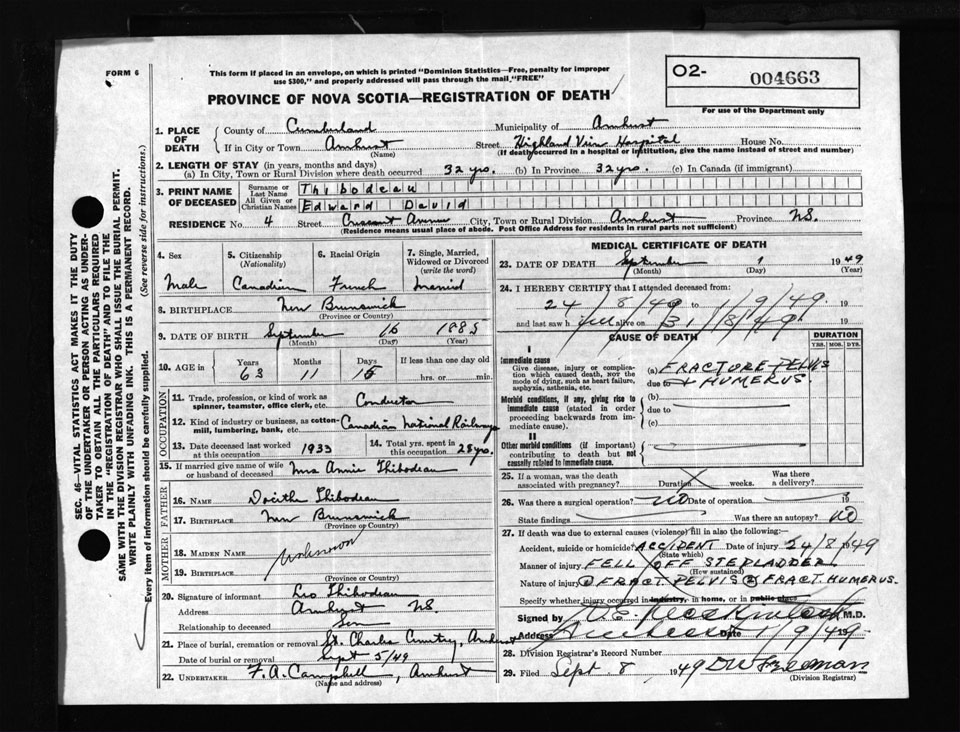 FORM 6
This form if placed in an envelope, on which is printed "Dominion Statistics—Free, penalty for improper
use $300," and properly addressed will pass through the mail "FREE"
O2- 004663
For use of the Department only
PROVINCE OF NOVA SCOTIA—REGISTRATION OF DEATH
1. PLACE OF DEATH
County of Cumberland Municipality of Amherst
If in City or Town Amherst (Name) Street Highland View Hospital House No.
(If death occurred in a hospital or institution, give the name instead of street and number)
2. LENGTH OF STAY (in years, months and days)
(a) In City, Town or Rural Division where death occurred 32 yrs. (b) In Province 32 yrs. (c) In Canada (if immigrant)
3. PRINT NAME OF DECEASED
Surname or Last Name Thibodeau
All Given or Christian Names Edward David
RESIDENCE No. 4 Street Crescent Avenue City, Town or Rural Division Amherst Province N.S.
(Residence means usual place of abode. Post Office Address for residents in rural parts not sufficient)
4. Sex Male
5. Citizenship (Nationality) Canadian
6. Racial Origin French
7. Single, Married, Widowed or Divorced (write the word) Married
8. BIRTHPLACE New Brunswick
(Province or Country)
9. DATE OF BIRTH September 16 1885
(Month) (Day) (Year)
10. AGE in Years 63 Months 11 Days 15 If less than one day old hrs. or min.
OCCUPATION
11. Trade, profession, or kind of work as spinner, teamster, office clerk, etc. Conductor
12. Kind of industry or business, as cotton-mill, lumbering, bank, etc. Canadian National Railways
13. Date deceased last worked at this occupation 1933
14. Total yrs. spent in this occupation 28 yrs.
15. If married give name of wife or husband of deceased Mrs Annie Thibodeau
FATHER
16. NAME Thibodeau
17. BIRTHPLACE New Brunswick
(Province or Country)
MOTHER
18. MAIDEN NAME unknown
19. BIRTHPLACE
(Province or Country)
20. Signature of informant Leo Thibodeau
Address Amherst N.S.
Relationship to deceased Son
21. Place of burial, cremation or removal St. Charles Cemetery, Amherst
Date of burial or removal Sept 5/49
22. UNDERTAKER F. A. Campbell, Amherst
(Name and address)
MEDICAL CERTIFICATE OF DEATH
23. DATE OF DEATH September 1 1949
(Month) (Day) (Year)
24. I HEREBY CERTIFY that I attended deceased from:
24/8/49 to 1/9/49 19
and last saw h alive on 31/8/49 19
CAUSE OF DEATH
DURATION
YRS. MOS. DYS.
I
Immediate cause
Give disease, injury or complication which caused death, NOT the mode of dying, such as heart failure, asphyxia, asthenia, etc.
(a) FRACTURE PELVIS
due to + HUMERUS
Morbid conditions, if any, giving rise to immediate cause (stated in order proceeding backwards from immediate cause).
(b)
due to
(c)
II
Other morbid conditions (if important) contributing to death but not causally related to immediate cause.
25. If a woman, was the death associated with pregnancy? Duration weeks. Was there a delivery?
26. Was there a surgical operation? NO Date of operation 19
State findings Was there an autopsy? NO
27. If death was due to external causes (violence) fill in also the following:—
Accident, suicide or homicide? ACCIDENT Date of injury 24/8/1949
(State which)
Manner of injury FELL OFF STEPLADDER
(How sustained)
Nature of injury ① FRACT. PELVIS ② FRACT. HUMERUS.
Specify whether injury occurred in industry, in home, or in public place
Signed by M.D.
Address Amherst Date 1/9/49 19
28. Division Registrar's Record Number
29. Filed Sept. 8 1949 D W Freeman
(Division Registrar)
SEC. 46—VITAL STATISTICS ACT MAKES IT THE DUTY
OF THE UNDERTAKER OR PERSON ACTING AS UNDER-
TAKER TO OBTAIN ALL THE PARTICULARS REQUIRED
IN THE "REGISTRATION OF DEATH" AND TO FILE THE
SAME WITH THE DIVISION REGISTRAR WHO SHALL ISSUE THE BURIAL PERMIT.
WRITE PLAINLY WITH UNFADING INK. THIS IS A PERMANENT RECORD.
Every item of information should be carefully supplied. (See reverse side for instructions.)